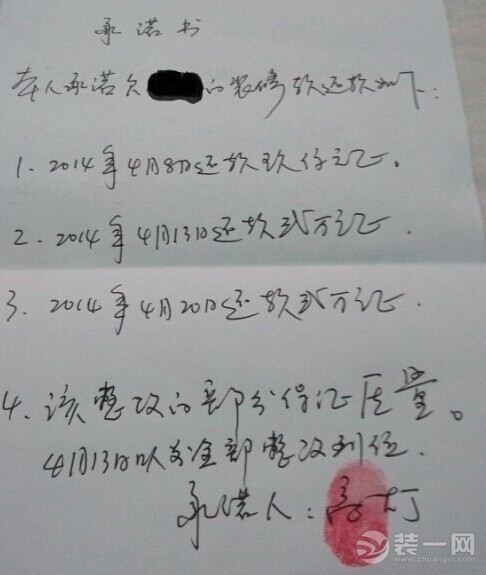 承诺书
本人承诺欠 的装修款还款如下：
1. 2014年4月8日还款玖仟元正。
2. 2014年4月13日还款贰万元正.
3. 2014年4月20日还款贰万元正.
4. 该整改的部分保证质量。
4月13日以前全部整改到位.
承诺人：
装一网
www.zhuangyi.com